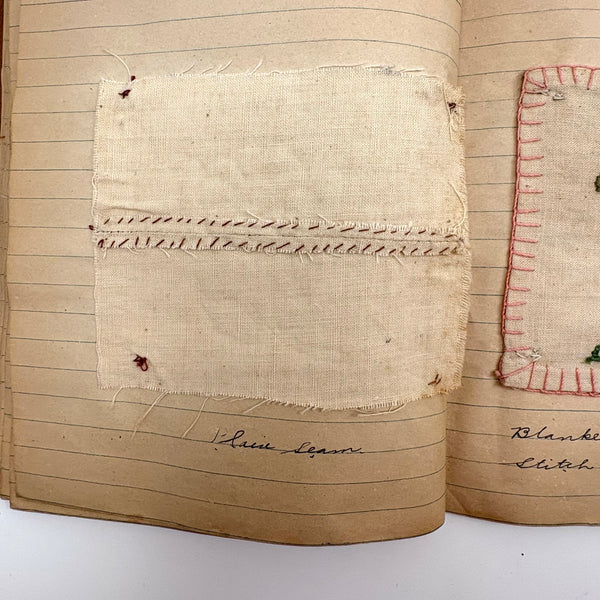 Plain seam.
Blanke
Stitch